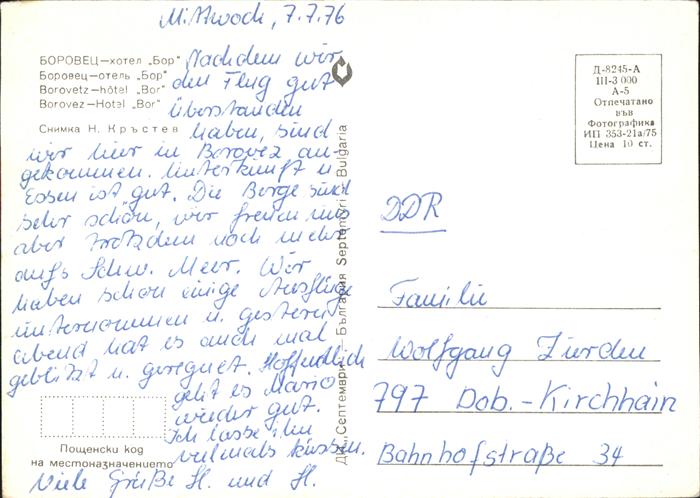 Mittwoch, 7.7.76
БОРОВЕЦ—хотел „Бор"
Боровец—отель „Бор"
Borovetz—hôtel "Bor"
Borovez—Hotel „Bor"
Снимка Н. Кръстев
Nachdem wir
den Flug gut
überstanden
haben, sind
wir hier in Borovez an-
gekommen. Unterkunft u.
Essen ist gut. Die Berge sind
sehr schön, wir freuen uns
aber trotzdem noch mehr
aufs Schw. Meer. Wir
haben schon einige Ausflüge
unternommen u. gestern
abend hat es auch mal
geblitzt u. geregnet. Hoffentlich
geht es Mario
wieder gut.
Ich lasse ihn
vielmals küssen.
Viele Grüße H. und H.
Пощенски код
на местоназначението
ДП „Септември" България Septemvri Bulgaria
Д-8245-А
III-3 000
А-5
Отпечатано
във
Фотографика
ИП 353-21а/75
Цена 10 ст.
DDR
Familie
Wolfgang Zierden
797 Dob.-Kirchhain
Bahnhofstraße 34